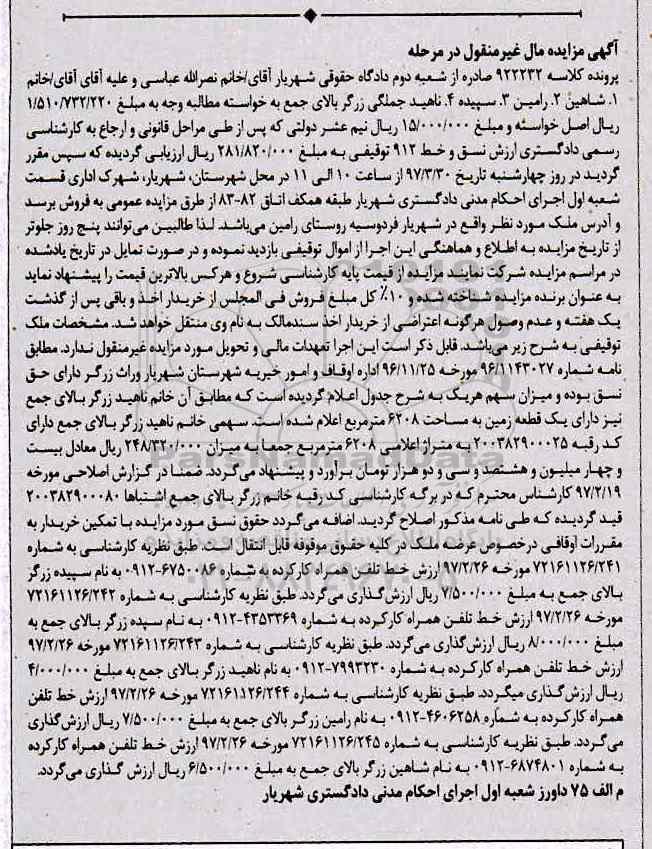 آگهی مزایده مال غیرمنقول در مرحله
پرونده کلاسه ۹۲۲۲۳۲ صادره از شعبه دوم دادگاه حقوقی شهریار آقای/خانم نصرالله عباسی و علیه آقای آقای/خانم
۱. شاهین ۲. رامین ۳. سپیده ۴. ناهید جملگی زرگر بالای جمع به خواسته مطالبه وجه به مبلغ ۱/۵۱۰/۷۳۲/۲۲۰
ریال اصل خواسته و مبلغ ۱۵/۰۰۰/۰۰۰ ریال نیم عشر دولتی که پس از طی مراحل قانونی و ارجاع به کارشناسی
رسمی دادگستری ارزش نسق و خط ۹۱۲ توقیفی به مبلغ ۲۸۱/۸۲۰/۰۰۰ ریال ارزیابی گردیده که سپس مقرر
گردید در روز چهارشنبه تاریخ ۹۷/۳/۳۰ از ساعت ۱۰ الی ۱۱ در محل شهرستان، شهریار، شهرک اداری قسمت
شعبه اول اجرای احکام مدنی دادگستری شهریار طبقه همکف اتاق ۸۲-۸۳ از طرق مزایده عمومی به فروش برسد
و آدرس ملک مورد نظر واقع در شهریار فردوسیه روستای رامین می‌باشد. لذا طالبین می‌توانند پنج روز جلوتر
از تاریخ مزایده به اطلاع و هماهنگی این اجرا از اموال توقیفی بازدید نموده و در صورت تمایل در تاریخ یادشده
در مراسم مزایده شرکت نمایند مزایده از قیمت پایه کارشناسی شروع و هرکس بالاترین قیمت را پیشنهاد نماید
به عنوان برنده مزایده شناخته شده و ۱۰٪ کل مبلغ فروش فی المجلس از خریدار اخذ و باقی پس از گذشت
یک هفته و عدم وصول هرگونه اعتراضی از خریدار اخذ سندمالک به نام وی منتقل خواهد شد. مشخصات ملک
توقیفی به شرح زیر می‌باشد. قابل ذکر است این اجرا تعهدات مالی و تحویل مورد مزایده غیرمنقول ندارد. مطابق
نامه شماره ۹۶/۱۱۴۳۰۲۷ مورخه ۹۶/۱۱/۲۵ اداره اوقاف و امور خیریه شهرستان شهریار وراث زرگر دارای حق
نسق بوده و میزان سهم هریک به شرح جدول اعلام گردیده است که مطابق آن خانم ناهید زرگر بالای جمع
نیز دارای یک قطعه زمین به مساحت ۶۲۰۸ مترمربع اعلام شده است. سهمی خانم ناهید زرگر بالای جمع دارای
کد رقبه ۲۰۰۳۸۲۹۰۰۰۲۵ به متراژ اعلامی ۶۲۰۸ مترمربع جمعا به میزان ۲۴۸/۳۲۰/۰۰۰ ریال معادل بیست
و چهار میلیون و هشتصد و سی و دو هزار تومان برآورد و پیشنهاد می‌گردد. ضمنا در گزارش اصلاحی مورخه
۹۷/۲/۱۹ کارشناس محترم که در برگه کارشناسی کد رقبه خانم زرگر بالای جمع اشتباها ۲۰۰۳۸۲۹۰۰۰۸۰
قید گردیده که طی نامه مذکور اصلاح گردید. اضافه می‌گردد حقوق نسق مورد مزایده با تمکین خریدار به
مقررات اوقافی درخصوص عرضه ملک در کلیه حقوق موقوفه قابل انتقال است. طبق نظریه کارشناسی به شماره
۷۲۱۶۱۱۲۶/۲۴۱ مورخه ۹۷/۲/۲۶ ارزش خط تلفن همراه کارکرده به شماره ۶۷۵۰۰۸۶-۰۹۱۲ به نام سپیده زرگر
بالای جمع به مبلغ ۷/۵۰۰/۰۰۰ ریال ارزش‌گذاری می‌گردد. طبق نظریه کارشناسی به شماره ۷۲۱۶۱۱۲۶/۲۴۲
مورخه ۹۷/۲/۲۶ ارزش خط تلفن همراه کارکرده به شماره ۴۳۵۳۳۶۹-۰۹۱۲ به نام سپده زرگر بالای جمع به
مبلغ ۸/۰۰۰/۰۰۰ ریال ارزش‌گذاری می‌گردد. طبق نظریه کارشناسی به شماره ۷۲۱۶۱۱۲۶/۲۴۳ مورخه ۹۷/۲/۲۶
ارزش خط تلفن همراه کارکرده به شماره ۷۹۹۳۲۳۰-۰۹۱۲ به نام ناهید زرگر بالای جمع به مبلغ ۴/۰۰۰/۰۰۰
ریال ارزش‌گذاری میگردد. طبق نظریه کارشناسی به شماره ۷۲۱۶۱۱۲۶/۲۴۴ مورخه ۹۷/۲/۲۶ ارزش خط تلفن
همراه کارکرده به شماره ۴۶۰۶۲۵۸-۰۹۱۲ به نام رامین زرگر بالای جمع به مبلغ ۷/۵۰۰/۰۰۰ ریال ارزش‌گذاری
می‌گردد. طبق نظریه کارشناسی به شماره ۷۲۱۶۱۱۲۶/۲۴۵ مورخه ۹۷/۲/۲۶ ارزش خط تلفن همراه کارکرده
به شماره ۶۸۷۴۸۰۱-۰۹۱۲ به نام شاهین زرگر بالای جمع به مبلغ ۶/۵۰۰/۰۰۰ ریال ارزش گذاری می‌گردد.
م الف ۷۵ داورز شعبه اول اجرای احکام مدنی دادگستری شهریار